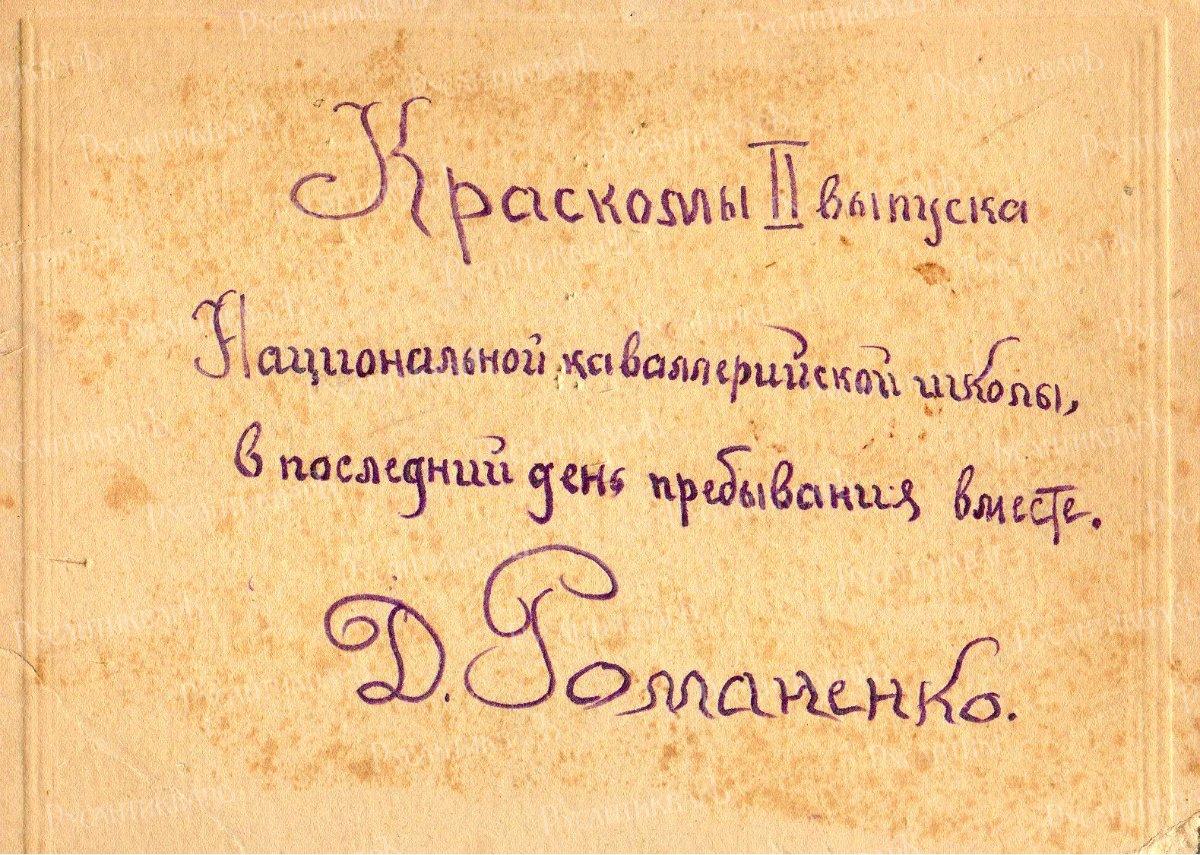 Краскомы II выпуска
Национальной каваллерийской школы,
в последний день пребывания вместе.
Д. Романенко.